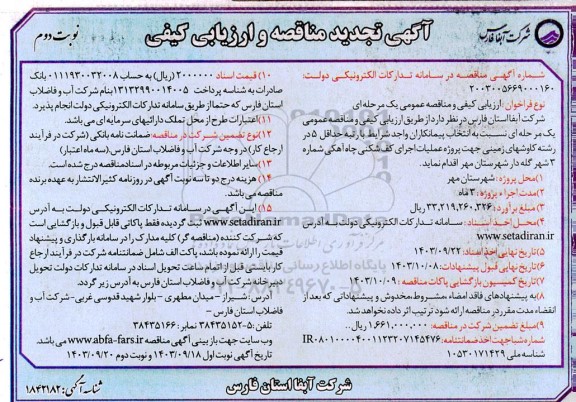 شرکت آبفا فارس
آگهی تجدید مناقصه و ارزیابی کیفی
نوبت دوم
شماره آگهی مناقصه در سامانه تدارکات الکترونیکی دولت:
۲۰۰۳۰۰۵۶۶۹۰۰۰۱۶۰
نوع فراخوان: ارزیابی کیفی و مناقصه عمومی یک مرحله ای
شرکت آبفا استان فارس در نظر دارد از طریق ارزیابی کیفی و مناقصه عمومی
یک مرحله ای نسبت به انتخاب پیمانکاران واجد شرایط دارنده حداقل ۵ در
رشته کاوشهای زمینی جهت پروژه عملیات اجرای کف شکنی چاه آهکی شماره
۳ شهر گله دار شهرستان مهر اقدام نماید.
۱) محل پروژه: شهرستان مهر
۲) مدت اجراء پروژه: ۳ ماه
۳) مبلغ برآورد: ۳۳,۲۱۹,۲۶۰,۳۲۶ ریال
۴) محل اخذ اسناد: سامانه تدارکات الکترونیکی دولت به آدرس
www.setadiran.ir
۵) تاریخ نهایی اخذ اسناد: ۱۴۰۳/۰۹/۲۲
۶) تاریخ نهایی قبول پیشنهادات: ۱۴۰۳/۱۰/۰۸
۷) تاریخ کمیسیون بازگشایی پاکات مناقصه: ۱۴۰۳/۱۰/۰۹
۸) به پیشنهادهای فاقد امضاء، مشروط، مخدوش و پیشنهاداتی که بعد از
انقضاء مدت مقرر در مناقصه ارائه شود ترتیب اثر داده نخواهد شد.
۹) مبلغ تضمین شرکت در مناقصه: ۱,۶۶۱,۰۰۰,۰۰۰ ریال
شماره شبا جهت اخذ ضمانتنامه: IR۰۸۰۱۰۰۰۰۴۰۰۱۱۲۳۲۰۷۱۴۵۴۷۶
شناسه ملی ۱۰۵۳۰۱۷۱۴۲۹
۱۰) قیمت اسناد ۲۰۰۰۰۰۰ (ریال) به حساب ۰۱۱۱۹۳۰۰۳۲۰۰۸ بانک
صادرات به شناسه پرداخت ۱۳۱۳۲۹۹۰۰۱۴۰۰۵ بنام شرکت آب و فاضلاب
استان فارس که حتما از طریق سامانه تدارکات الکترونیکی دولت انجام پذیرد.
۱۱) اعتبارات طرح از محل تملک دارائیهای سرمایه ای می باشد.
۱۲) نوع تضمین شرکت در مناقصه: ضمانت نامه بانکی (شرکت در فرآیند
ارجاع کار) در وجه شرکت آب و فاضلاب استان فارس.(سه ماه اعتبار)
۱۳) سایر اطلاعات و جزئیات مربوطه در اسناد مناقصه درج شده است.
۱۴) هزینه درج دو تا سه نوبت آگهی در روزنامه کثیرالانتشار به عهده برنده
مناقصه می باشد.
۱۵) این آگهی در سامانه تدارکات الکترونیکی دولت به آدرس
www.setadiran.ir ثبت گردیده فقط پاکاتی قابل قبول و بازگشایی است
که شرکت کننده (مناقصه گر) کلیه مدارک را در سامانه بارگذاری و پیشنهاد
قیمت را ارائه نموده باشد، پاکت الف شامل ضمانتنامه شرکت در فرآیند ارجاع
کار بایستی قبل از اتمام ساعت تحویل اسناد در سامانه تدارکات دولت تحویل
دبیرخانه شرکت آب و فاضلاب استان فارس به آدرس زیر گردد.
آدرس: شیراز - میدان مطهری - بلوار شهید قدوسی غربی - شرکت آب و
فاضلاب استان فارس -
تلفن: ۵-۳۸۴۳۵۱۵۲ نمابر: ۳۸۴۳۵۱۶۶
وب سایت جهت بازبینی آگهی مناقصه www.abfa-fars.ir می باشد.
تاریخ آگهی نوبت اول ۱۴۰۳/۰۹/۱۸ و نوبت دوم ۱۴۰۳/۰۹/۲۰
شرکت آبفا استان فارس
شناسه آگهی: ۱۸۴۲۱۸۲